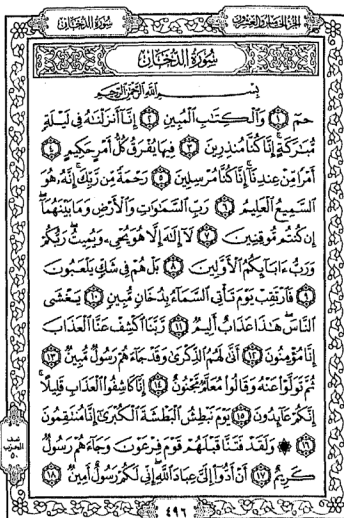 الجزء الخامس والعشرون
سورة الدخان
سُورَةُ الدُّخَانِ
بِسْمِ اللَّهِ الرَّحْمَٰنِ الرَّحِيمِ
حمٓ ١ وَٱلْكِتَٰبِ ٱلْمُبِينِ ٢ إِنَّآ أَنزَلْنَٰهُ فِى لَيْلَةٍ
مُّبَٰرَكَةٍ إِنَّا كُنَّا مُنذِرِينَ ٣ فِيهَا يُفْرَقُ كُلُّ أَمْرٍ حَكِيمٍ ٤
أَمْرًا مِّنْ عِندِنَآ إِنَّا كُنَّا مُرْسِلِينَ ٥ رَحْمَةً مِّن رَّبِّكَ إِنَّهُۥ هُوَ
ٱلسَّمِيعُ ٱلْعَلِيمُ ٦ رَبِّ ٱلسَّمَٰوَٰتِ وَٱلْأَرْضِ وَمَا بَيْنَهُمَآ
إِن كُنتُم مُّوقِنِينَ ٧ لَآ إِلَٰهَ إِلَّا هُوَ يُحْىِۦ وَيُمِيتُ رَبُّكُمْ
وَرَبُّ ءَابَآئِكُمُ ٱلْأَوَّلِينَ ٨ بَلْ هُمْ فِى شَكٍّ يَلْعَبُونَ
٩ فَٱرْتَقِبْ يَوْمَ تَأْتِى ٱلسَّمَآءُ بِدُخَانٍ مُّبِينٍ ١٠ يَغْشَى
ٱلنَّاسَ هَٰذَا عَذَابٌ أَلِيمٌ ١١ رَّبَّنَا ٱكْشِفْ عَنَّا ٱلْعَذَابَ
إِنَّا مُؤْمِنُونَ ١٢ أَنَّىٰ لَهُمُ ٱلذِّكْرَىٰ وَقَدْ جَآءَهُمْ رَسُولٌ مُّبِينٌ ١٣
ثُمَّ تَوَلَّوْا۟ عَنْهُ وَقَالُوا۟ مُعَلَّمٌ مَّجْنُونٌ ١٤ إِنَّا كَاشِفُوا۟ ٱلْعَذَابِ قَلِيلًا
إِنَّكُمْ عَآئِدُونَ ١٥ يَوْمَ نَبْطِشُ ٱلْبَطْشَةَ ٱلْكُبْرَىٰٓ إِنَّا مُنتَقِمُونَ
١٦ ۞ وَلَقَدْ فَتَنَّا قَبْلَهُمْ قَوْمَ فِرْعَوْنَ وَجَآءَهُمْ رَسُولٌ
كَرِيمٌ ١٧ أَنْ أَدُّوٓا۟ إِلَىَّ عِبَادَ ٱللَّهِ إِنِّى لَكُمْ رَسُولٌ أَمِينٌ ١٨
نصف
الحزب
٥٠
٤٩٦